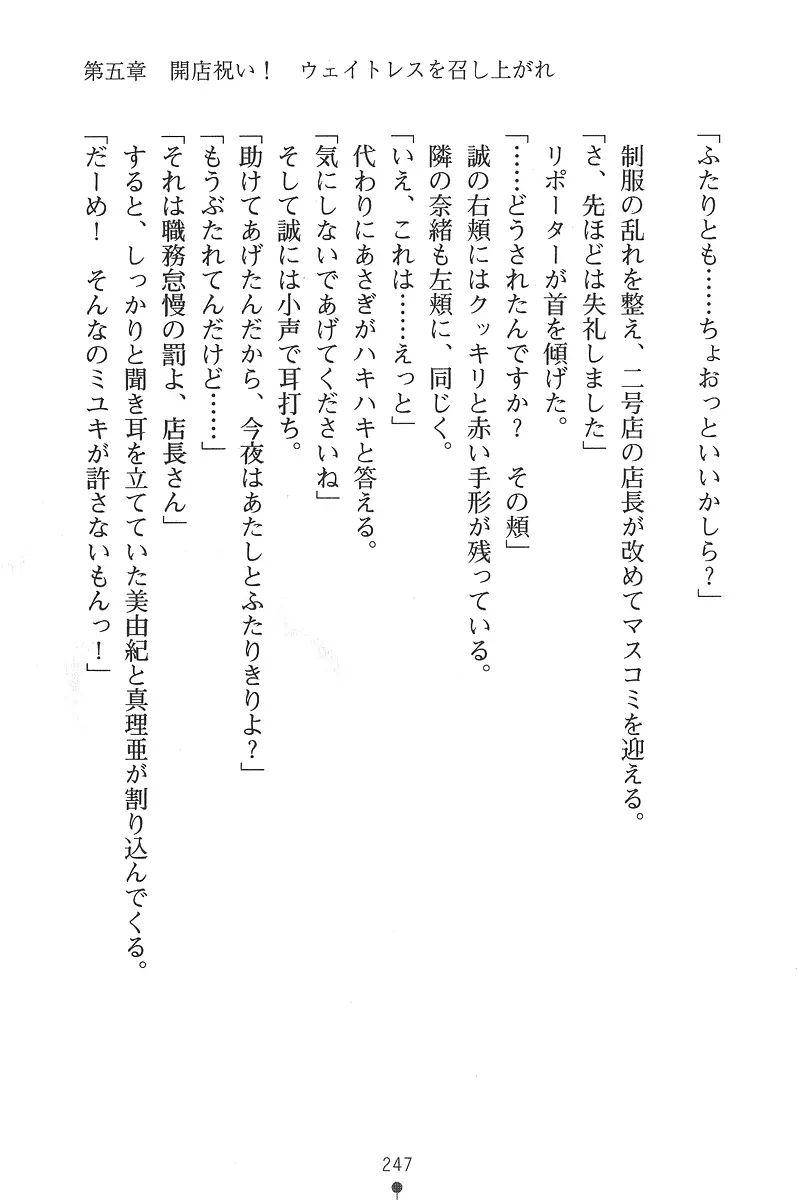 第五章　開店祝い！　ウェイトレスを召し上がれ
「ふたりとも……ちょおっといいかしら？」
制服の乱れを整え、二号店の店長が改めてマスコミを迎える。
「さ、先ほどは失礼しました」
リポーターが首を傾げた。
「……どうされたんですか？　その頬」
誠の右頬にはクッキリと赤い手形が残っている。
隣の奈緒も左頬に、同じく。
「いえ、これは……えっと」
代わりにあさぎがハキハキと答える。
「気にしないであげてくださいね」
そして誠には小声で耳打ち。
「助けてあげたんだから、今夜はあたしとふたりきりよ？」
「もうぶたれてんだけど……」
「それは職務怠慢の罰よ、店長さん」
すると、しっかりと聞き耳を立てていた美由紀と真理亜が割り込んでくる。
「だーめ！　そんなのミユキが許さないもんっ！」
247